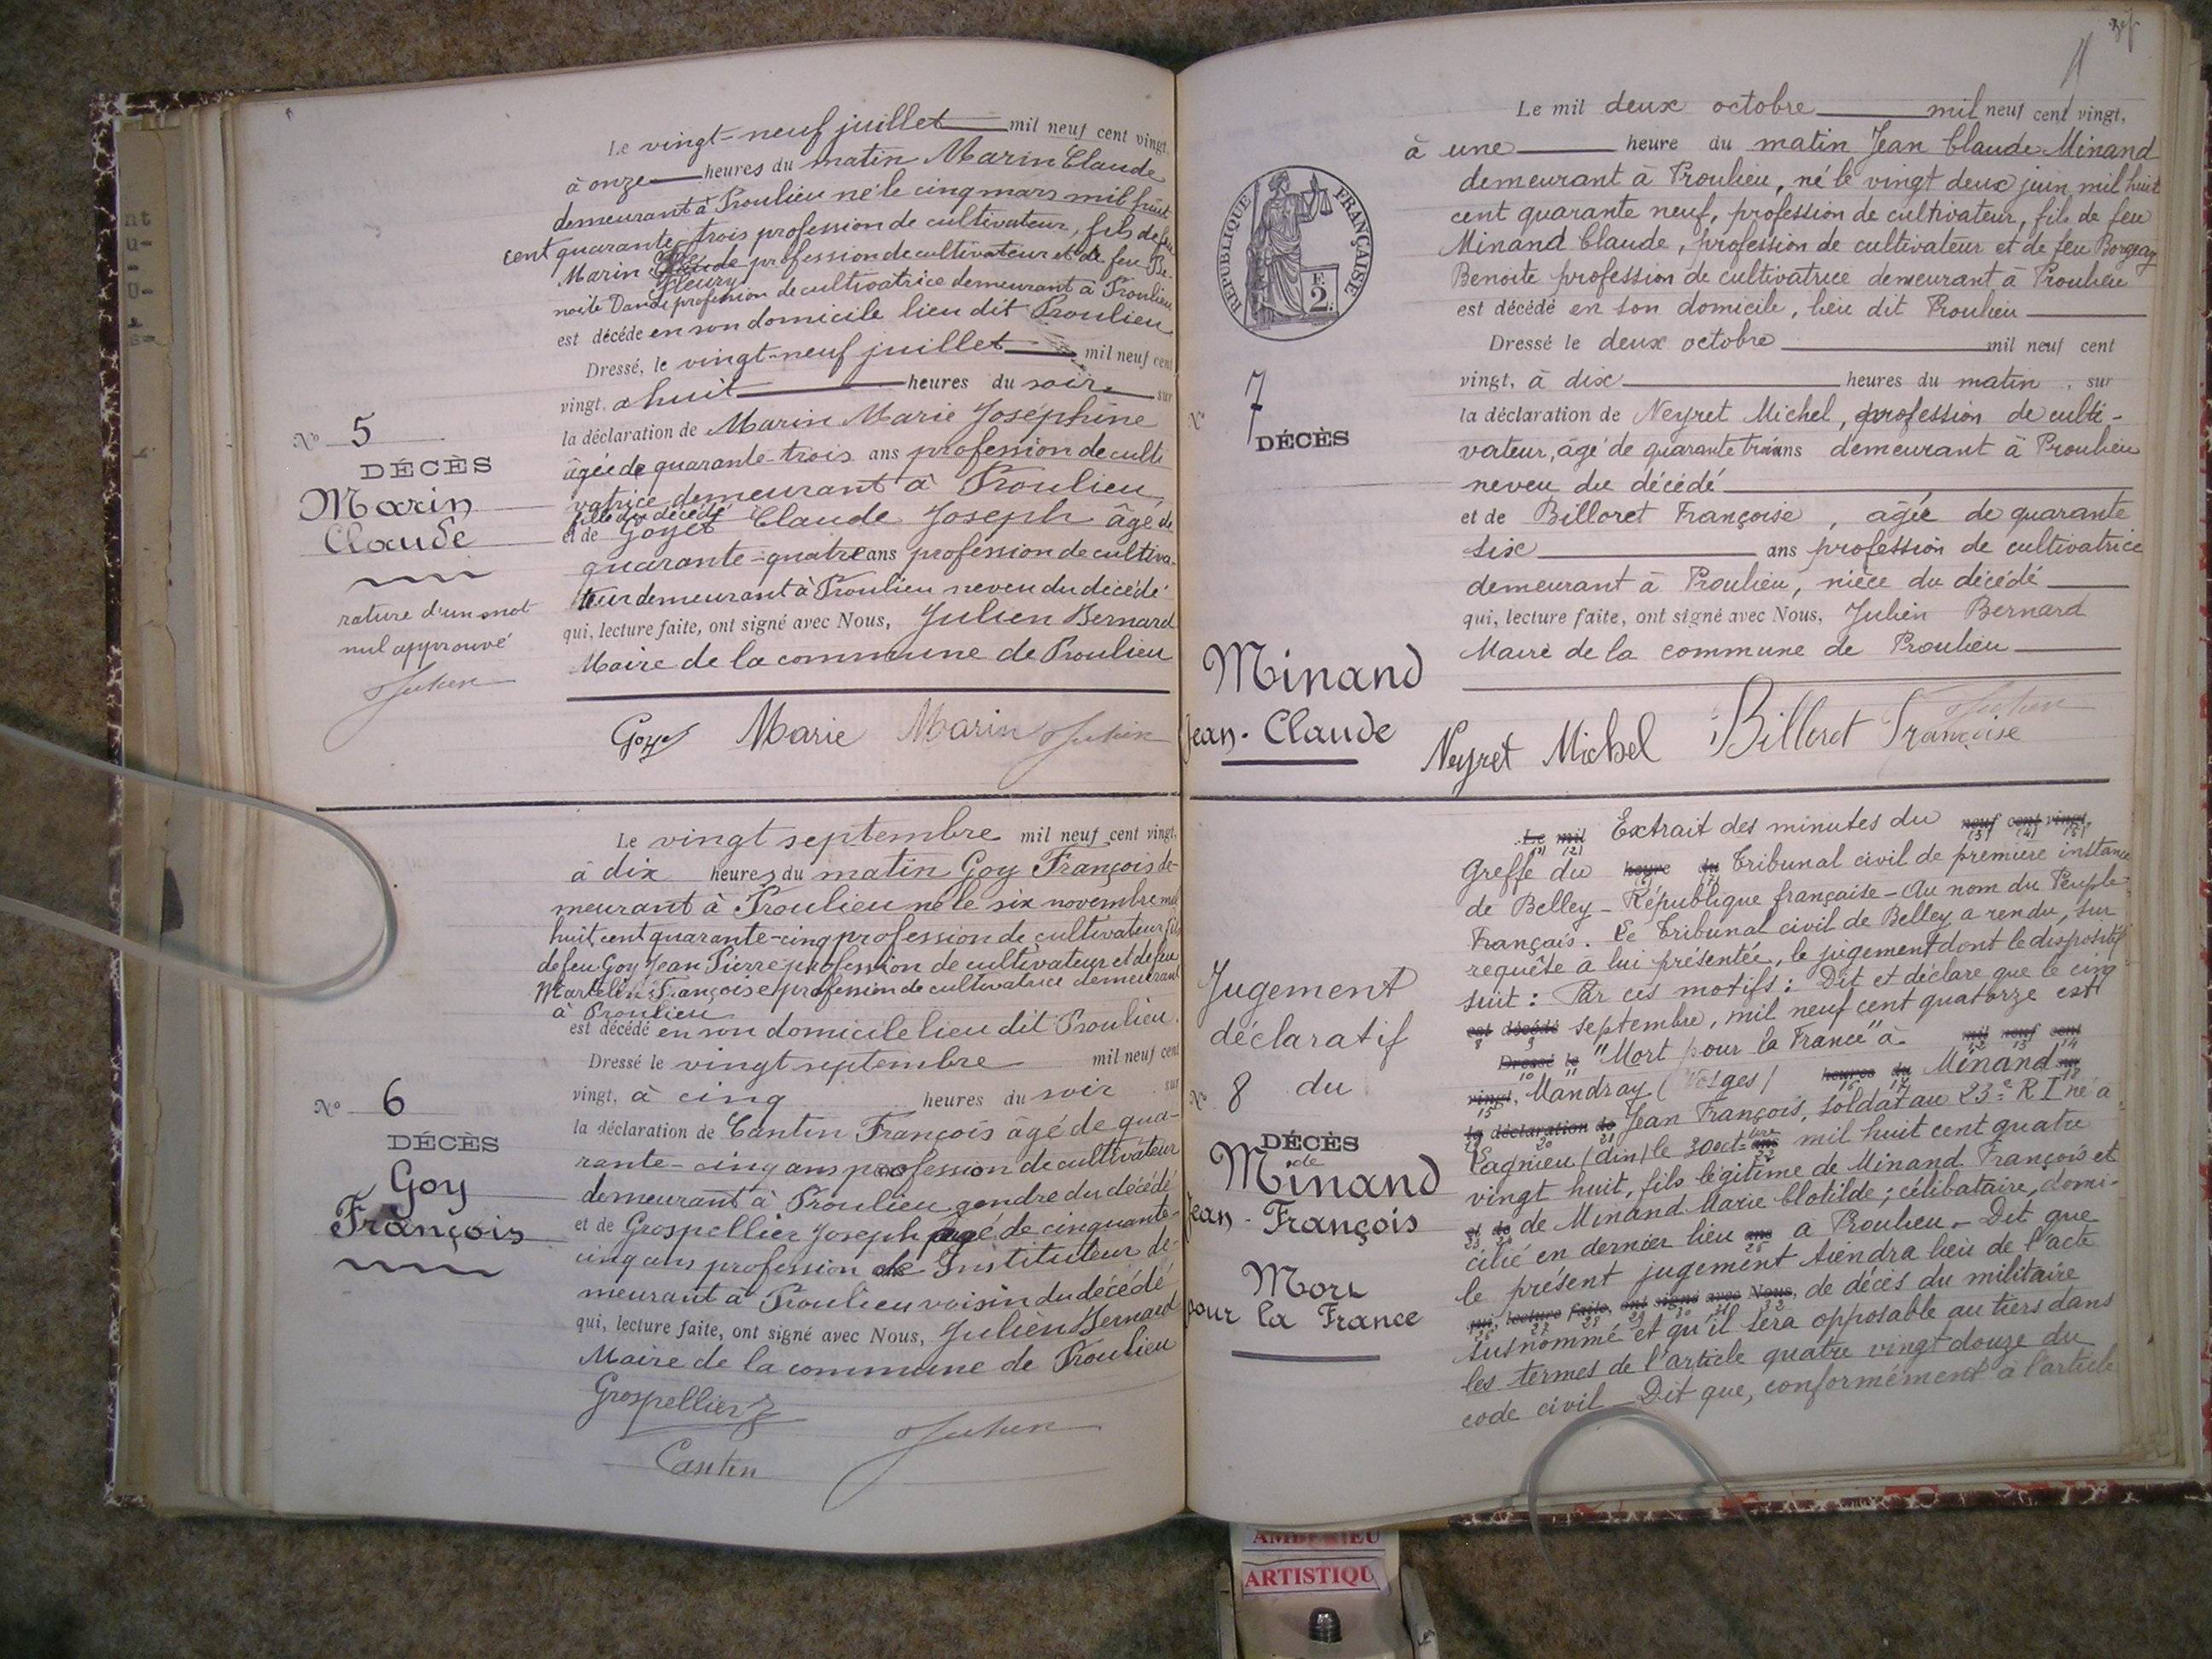 Le vingt-neuf juillet mil neuf cent vingt,
à onze heures du matin Marin Claude
demeurant à Proulieu né le cinq mars mil huit
cent quarante-trois profession de cultivateur, fils de feu
Marin Claude profession de cultivateur et de feu Be-
Fleury
noite Dandi profession de cultivatrice demeurant à Proulieu
est décédé en son domicile lieu dit Proulieu
Dressé, le vingt-neuf juillet mil neuf cent
vingt, à huit heures du soir, sur
la déclaration de Marin Marie Joséphine
âgée de quarante-trois ans profession de culti
vatrice demeurant à Proulieu,
fille du décédé
et de Goyet Claude Joseph âgé de
quarante-quatre ans profession de cultiva-
teur demeurant à Proulieu neveu du décédé
qui, lecture faite, ont signé avec Nous, Julien Bernard
Maire de la commune de Proulieu
N° 5
DÉCÈS
Marin
Claude
rature d'un mot
nul approuvé
Julien
Goyet Marie Marin Julien
Le vingt septembre mil neuf cent vingt,
à dix heures du matin Goy François de-
meurant à Proulieu né le six novembre mil
huit cent quarante-cinq profession de cultivateur fils
de feu Goy Jean Pierre profession de cultivateur et de feu
Martelin Françoise profession de cultivatrice demeurant
à Proulieu
est décédé en son domicile lieu dit Proulieu.
Dressé le vingt septembre mil neuf cent
vingt, à cinq heures du soir sur
la déclaration de Cantin François âgé de qua-
rante-cinq ans profession de cultivateur
demeurant à Proulieu gendre du décédé
et de Grospellier Joseph âgé de cinquante-
cinq ans profession de Instituteur de-
meurant à Proulieu voisin du décédé
qui, lecture faite, ont signé avec Nous, Julien Bernard
Maire de la commune de Proulieu
N° 6
DÉCÈS
Goy
François
Grospellier
Julien
Cantin
Le mil deux octobre mil neuf cent vingt,
à une heure du matin Jean Claude Minand
demeurant à Proulieu, né le vingt deux juin mil huit
cent quarante neuf, profession de cultivateur, fils de feu
Minand Claude, profession de cultivateur et de feu Borgeay
Benoite profession de cultivatrice demeurant à Proulieu
est décédé en son domicile, lieu dit Proulieu
Dressé le deux octobre mil neuf cent
vingt, à dix heures du matin, sur
la déclaration de Neyret Michel, profession de culti-
vateur, âgé de quarante trois ans demeurant à Proulieu
neveu du décédé
et de Billoret Françoise, agée de quarante
six ans profession de cultivatrice
demeurant à Proulieu, nièce du décédé
qui, lecture faite, ont signé avec Nous, Julien Bernard
Maire de la commune de Proulieu
RÉPUBLIQUE FRANÇAISE
F.
2.
N° 7
DÉCÈS
Minand
Jean-Claude
Neyret Michel Billoret Françoise
Julien
Le mil Extrait des minutes du neuf cent vingt,
(1) (2) (3) (4) (5)
Greffe du heure du Tribunal civil de première instance
(6) (7)
de Belley - République française - Au nom du Peuple
Français. Le Tribunal civil de Belley a rendu, sur
requête à lui présentée, le jugement dont le dispositif
suit: Par ces motifs: Dit et déclare que le cinq
est décédé septembre, mil neuf cent quatorze est
8 9
Dressé le "Mort pour la France" à mil neuf cent
10 11 12 13 14
vingt, Mandray (Vosges) heures du Minand sur
15 16 17 18
la déclaration de Jean François, soldat au 23e R I né à
19 20 21
Lagnieu (Ain) le 30 octbre ans mil huit cent quatre
22
vingt huit, fils légitime de Minand François et
et de de Minand Marie Clotilde; célibataire, domi-
23 24
cilié en dernier lieu ans à Proulieu - Dit que
25
le présent jugement tiendra lieu de l'acte
qui, lecture faite, ont signé avec Nous, de décès du militaire
26 27 28 29 30 31 32
susnommé et qu'il sera opposable au tiers dans
les termes de l'article quatre vingt douze du
code civil - Dit que, conformément à l'article
Jugement
déclaratif
du
N° 8
DÉCÈS
de
Minand
Jean-François
Mort
pour la France
ARTISTIQU